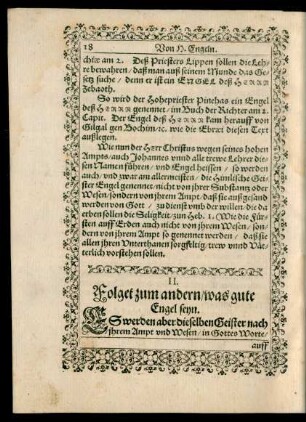 18 Von H. Engeln.
chiæ am 2. Deß Priesters Lippen sollen die Leh-
re bewahren / daß man auß seinem Munde das Ge-
setz suche / denn er ist ein ENGEL deß HERRN
Zebaoth.
So wird der Hohepriester Pinehas ein Engel
deß HERRN genennet / im Buch der Richter am 2.
Capit. Der Engel deß HERRN kam herauff von
Gilgal gen Bochim / ꝛc. wie die Ebræi diesen Text
außlegen.
Wie nun der HErr Christus wegen seines hohen
Ampts / auch Johannes vnnd alle trewe Lehrer die-
sen Namen führen / vnd Engel heissen / so werden
auch / vnd zwar am allermeisten / die Himlische Gei-
ster Engel genennet / nicht von jhrer Substantz oder
Wesen / sondern von jhrem Ampt / daß sie außgesand
werden von Gott / zu dienst vmb der willen / die da
erben sollen die Seligkeit / zun Heb. 1. (Wie die Für-
sten auff Erden auch nicht von jhrem Wesen / son-
dern von jhrem Ampt so genennet werden / daß sie
allen jhren Vnterthanen sorgfeltig / trew vnnd Vät-
terlich vorstehen sollen.
II.
Folget zum andern / was gute
Engel seyn.
ES werden aber dieselben Geister nach
jhrem Ampt vnd Wesen / in Gottes Worte /
auff